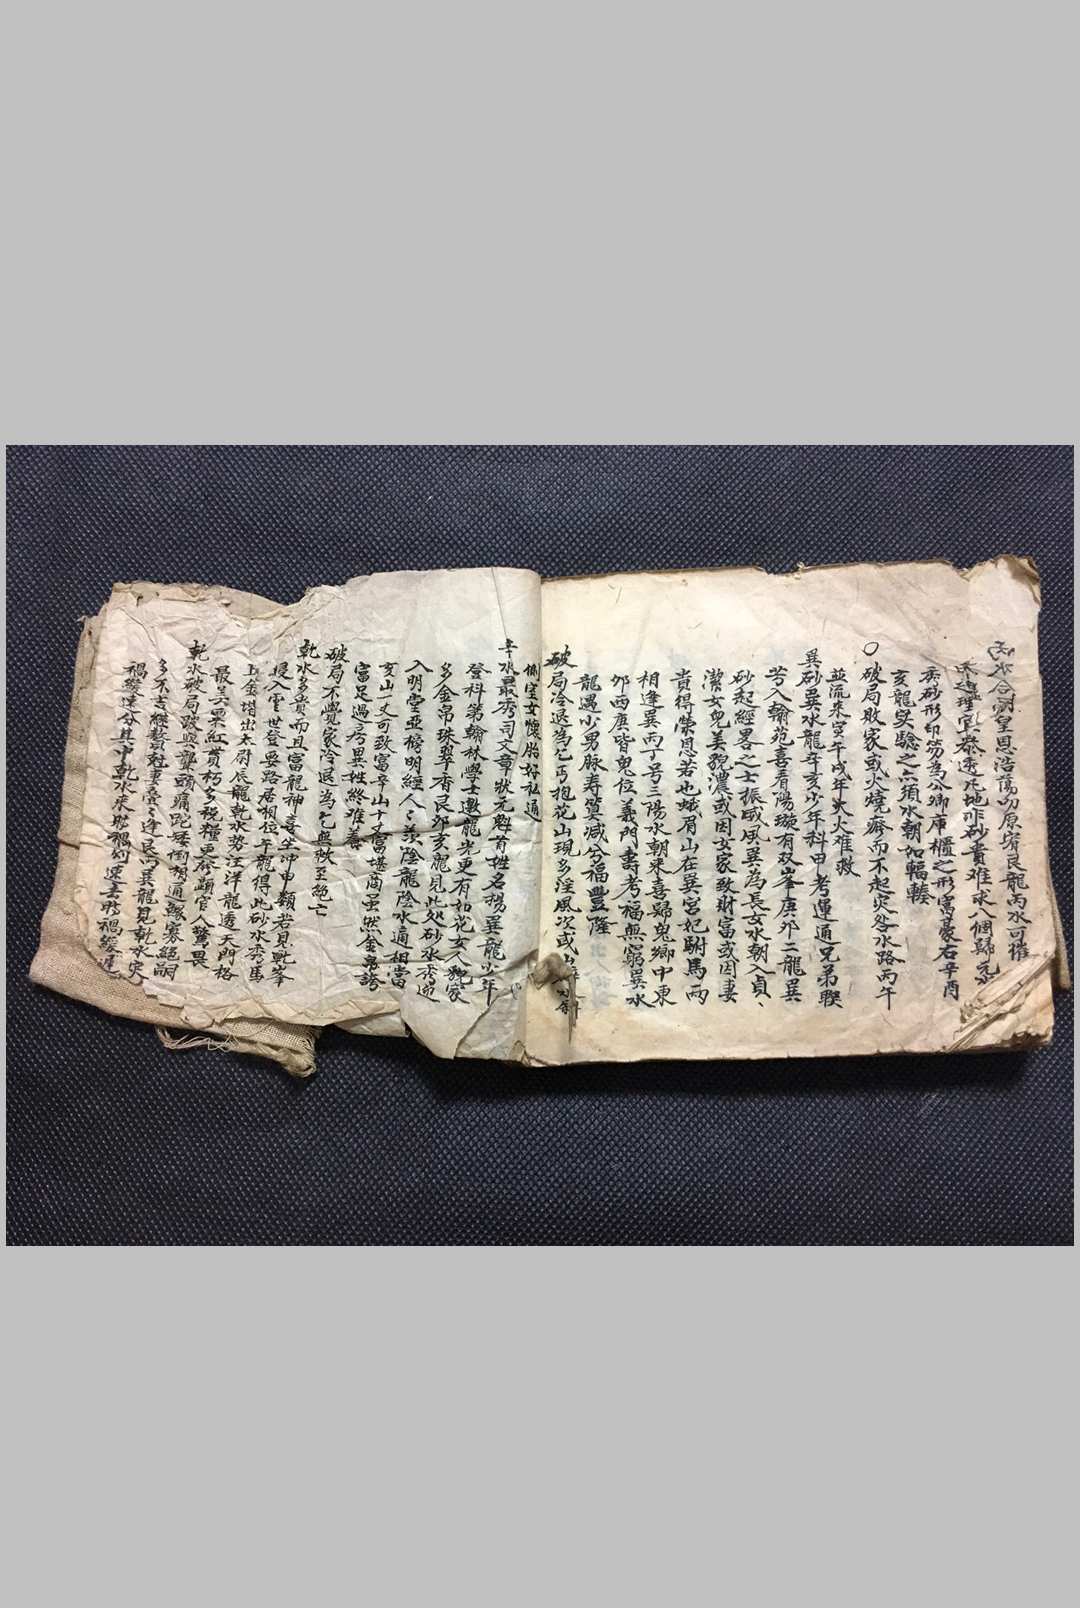 丙水合閗皇恩浩蕩功原宥艮龍丙水可催
砂貴难求八個歸元水
秀砂形印笏為公卿庫櫃之形富豪右辛酉
亥龍癸驗之六須水朝如輻輳
〇破局敗家或火燒瘠而不起災咎水路丙午
並流来寅午戌年災火难救
巽砂巽水龍辛亥少年科甲考運通兄弟聯
芳入翰苑喜看陽璇有双峯庚夘二龍巽
砂起經畧之士振威風巽為長女水朝入貞、
潔女兒美貌濃或因女家致財富或因妻
貴得榮恩若也蛾眉山在巽宮妃駙馬兩
相逢巽丙丁号三陽水朝来喜歸鬼鄉中東
夘西庚皆鬼位義門壽考福無窮巽水
龍遇少男脉寿筭减兮福豐隆
破局冷退為乞丐抱花山現多淫風次或
係室女懷胎好私通
辛水最秀司文章狀元魁首姓名揚巽龍少年
登科第翰林學士邀龍光更有如花女人獨家
多金帛珠翠香艮夘亥龍見此処砂水秀
入明堂亞榜明經人〻羨陰龍陰水通相當
亥山一丈可致富辛山十丈富堪商虽然金帛誇
富足過房異姓終难善
破局不覺家冷退為乞無救至絕亡
乾水多貴而且富龍神喜坐坤申類若見乾峯
侵入雲世登要路居相位午龍得此砂水秀馬
上金堦出太尉辰龍乾水势汪洋龍透天門格
最兴粟紅貫朽多税糧更為顯官人驚畏
乾水破局跛與聾頭痛跎矮倒相通鰥寡絕嗣
多不吉 重叠〻逢艮丙巽龍見乾水灾
禍緩達分其中乾水来